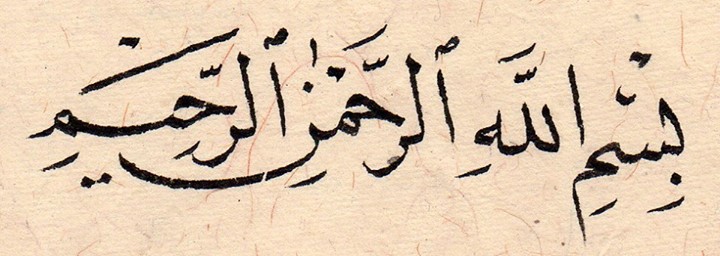 بِسْمِ اللَّهِ ٱلرَّحْمَٰنِ ٱلرَّحِيمِ